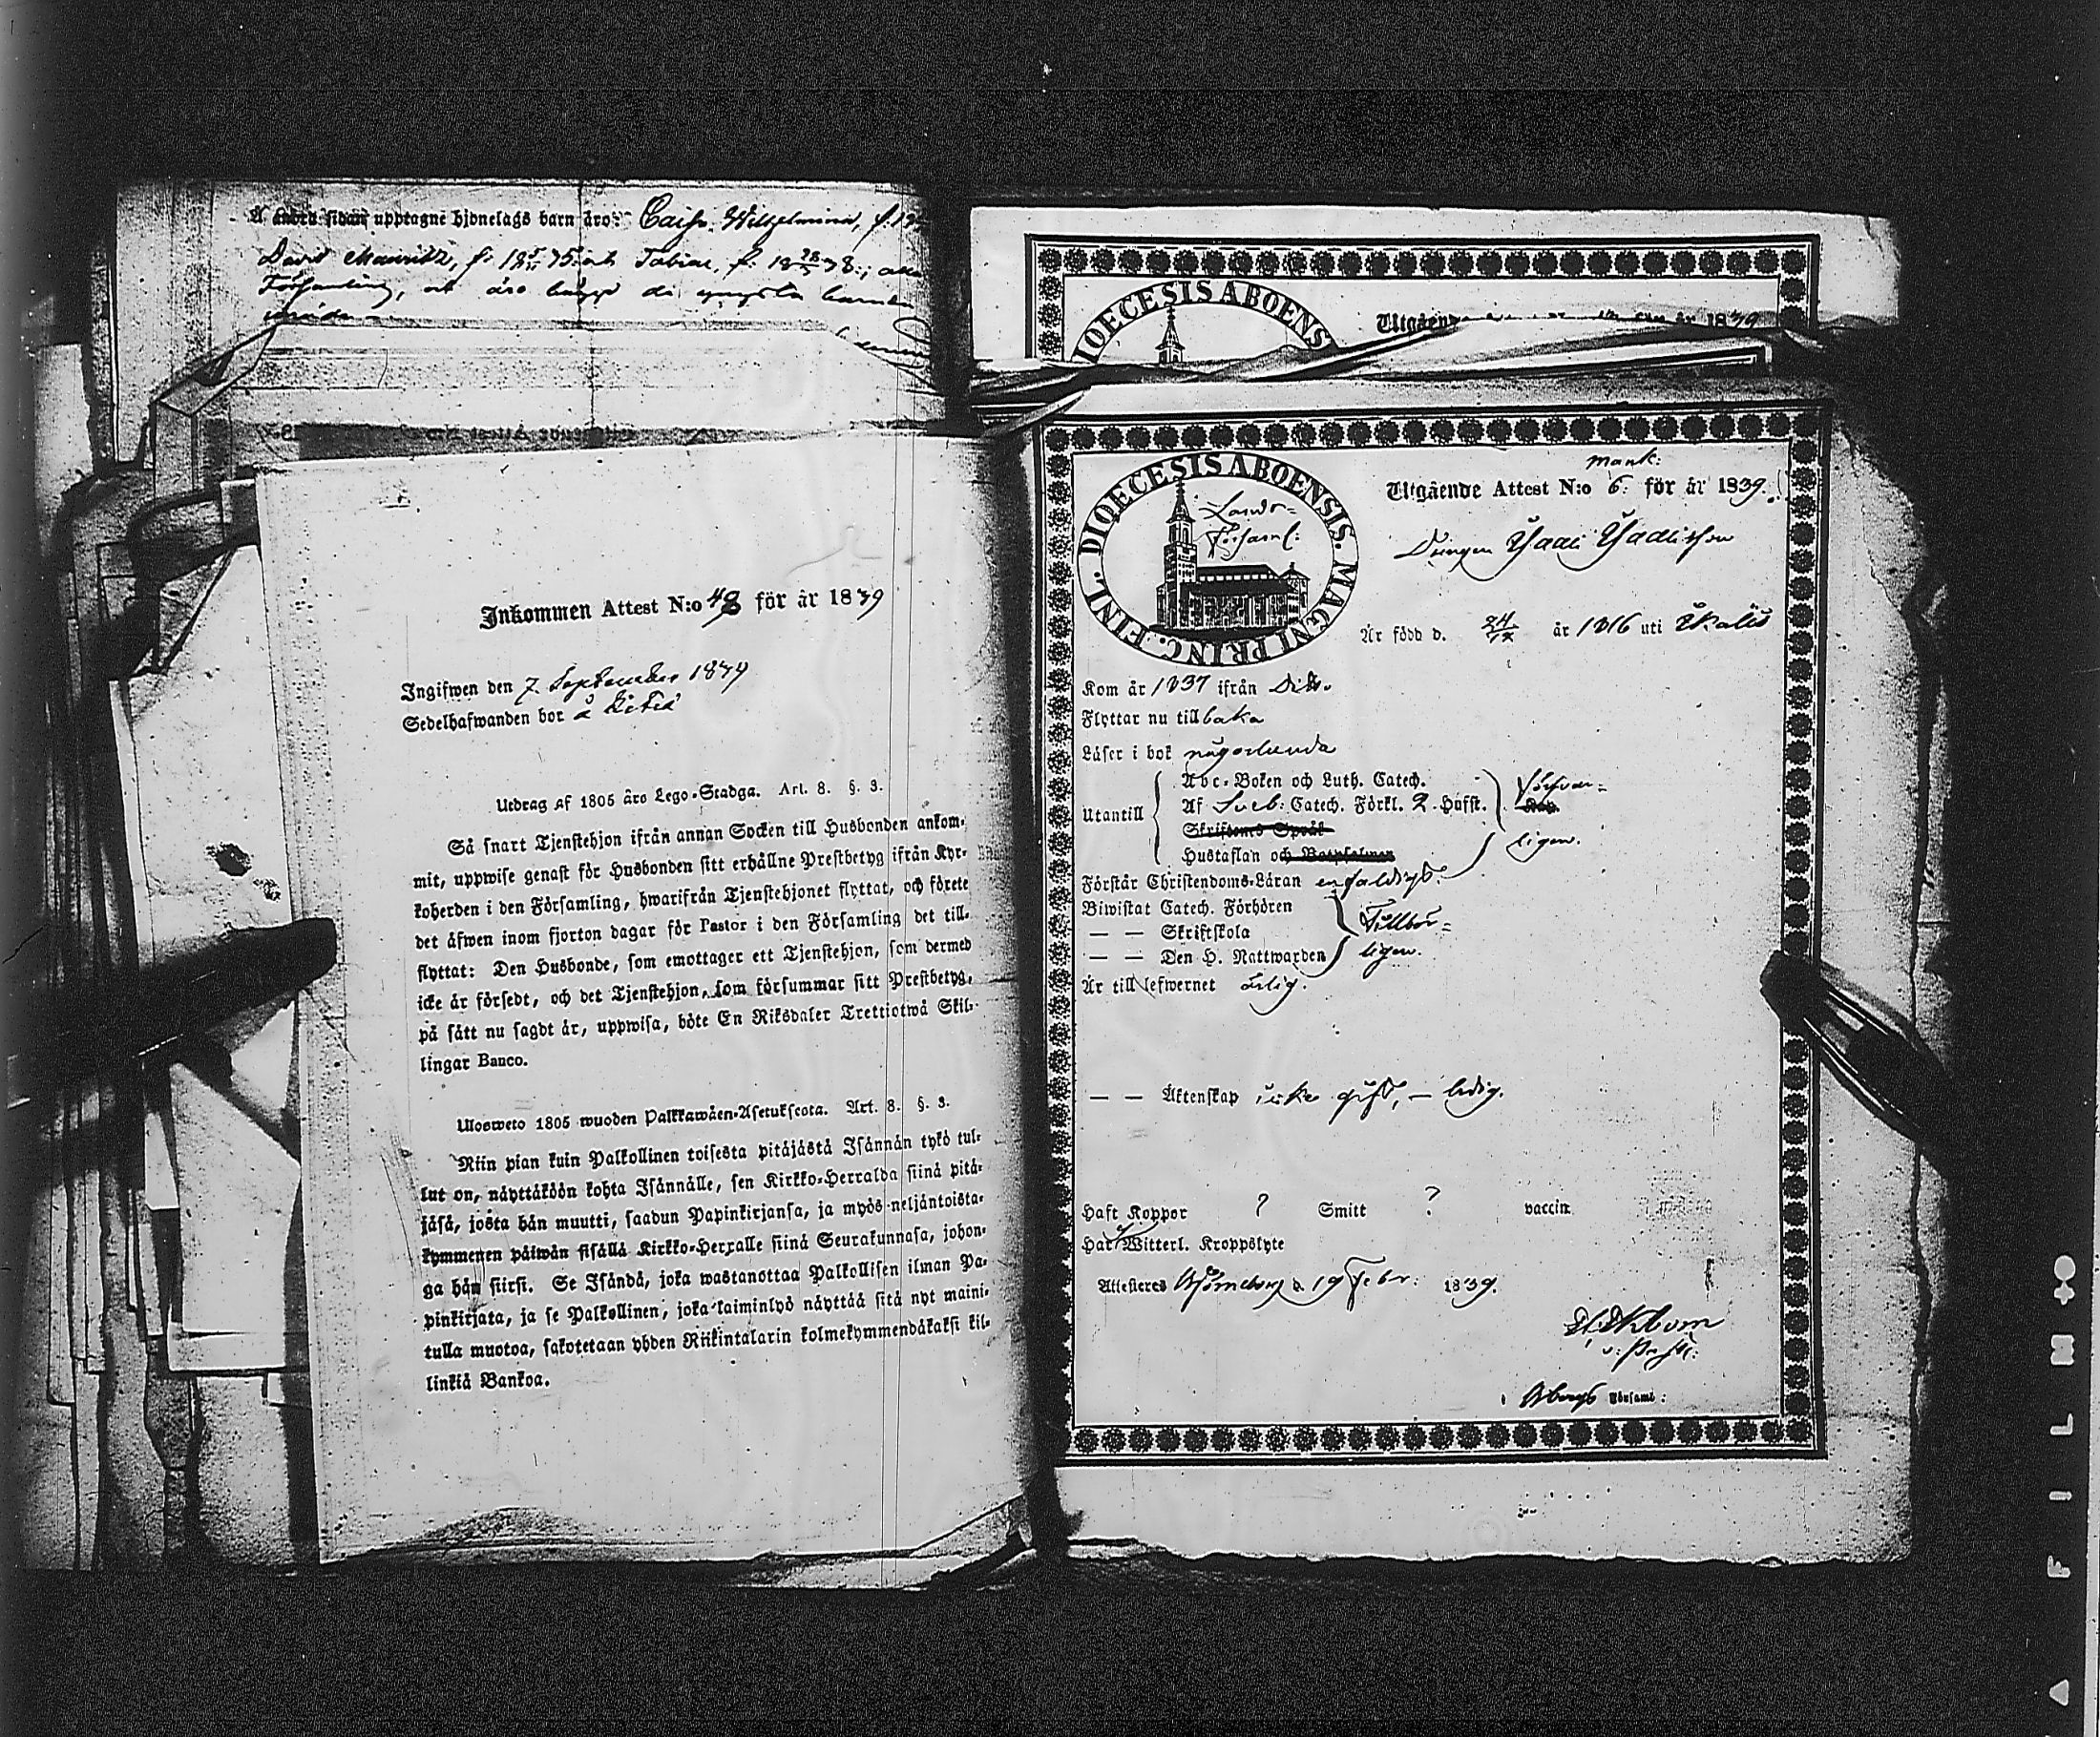 Å andra sidan upptagne hjonelags barn äro: Cajsa Wilhelmina, f. 18
David Mauritz, f. 18 35 och Tobias, f. 18 38; alla
Församling, och äro de yngsta barnen
Inkommen Attest N:o 48 för år 1839
Ingifwen den 7 September 1839
Sedelhafwanden bor å
Utdrag af 1805 års Lego-Stadga. Art. 8. §. 3.
Så snart Tjenstehjon ifrån annan Socken till Husbonden ankom-
mit, uppwise genast för Husbonden sitt erhållne Prestbetyg ifrån Kyr-
koherden i den Församling, hwarifrån Tjenstehjonet flyttat, och förete
det äfwen inom fjorton dagar för Pastor i den Församling det till-
flyttat: Den Husbonde, som emottager ett Tjenstehjon, som dermed
icke är försedt, och det Tjenstehjon, som försummar sitt Prestbetyg,
på sätt nu sagdt är, uppwisa, böte En Riksdaler Trettiotwå Skil-
lingar Banco.
Ulosweto 1805 wuoden Palkkawäen-Asetuksesta. Art. 8. §. 3.
Niin pian kuin Palkollinen toisesta pitäjästä Isännän tykö tul-
lut on, näyttäköön kohta Isännälle, sen Kirkko-Herralda siinä pitä-
jäsä, josta hän muutti, saadun Papinkirjansa, ja myös neljäntoista-
kymmenen päiwän sisällä Kirkko-Herralle siinä Seurakunnasa, johon-
ga hän siirsi. Se Isändä, joka wastanottaa Palkollisen ilman Pa-
pinkirjata, ja se Palkollinen, joka laiminlyö näyttää sitä nyt maini-
tulla muotoa, sakotetaan yhden Riikintalarin kolmekymmendäkaksi kil-
linkiä Bankoa.
DIOECESIS ABOENS
Utgående 1839
DIOECESIS ABOENSIS. MAGNI PRINC. FINL.
Lands-
Församl:
mank:
Utgående Attest N:o 6: för år 1839.
Drängen
Är född d. 24/ år 1816 uti Ikalis
Kom år 1837 ifrån Dito
Flyttar nu tillbaka
Läser i bok någorlunda
Utantill
Abc-Boken och Luth. Catech.
Af Sveb: Catech. Förkl. 2 Häfft.
Skriftenes Språk
Hustaflan och Botpsalmer
försvar-
ligen.
Förstår Christendoms-Läran enfaldigt.
Biwistat Catech. Förhören
— — Skriftskola
— — Den H. Nattwarden
Tillbör-
ligen.
Är till lefwernet ärlig.
— — Äktenskap icke gift, — ledig.
Haft Koppor ? Smitt ? vaccin.
Har Witterl. Kroppslyte
Attesteres Björneborg d. 19 Febr: 1839.
Församl:
FILM